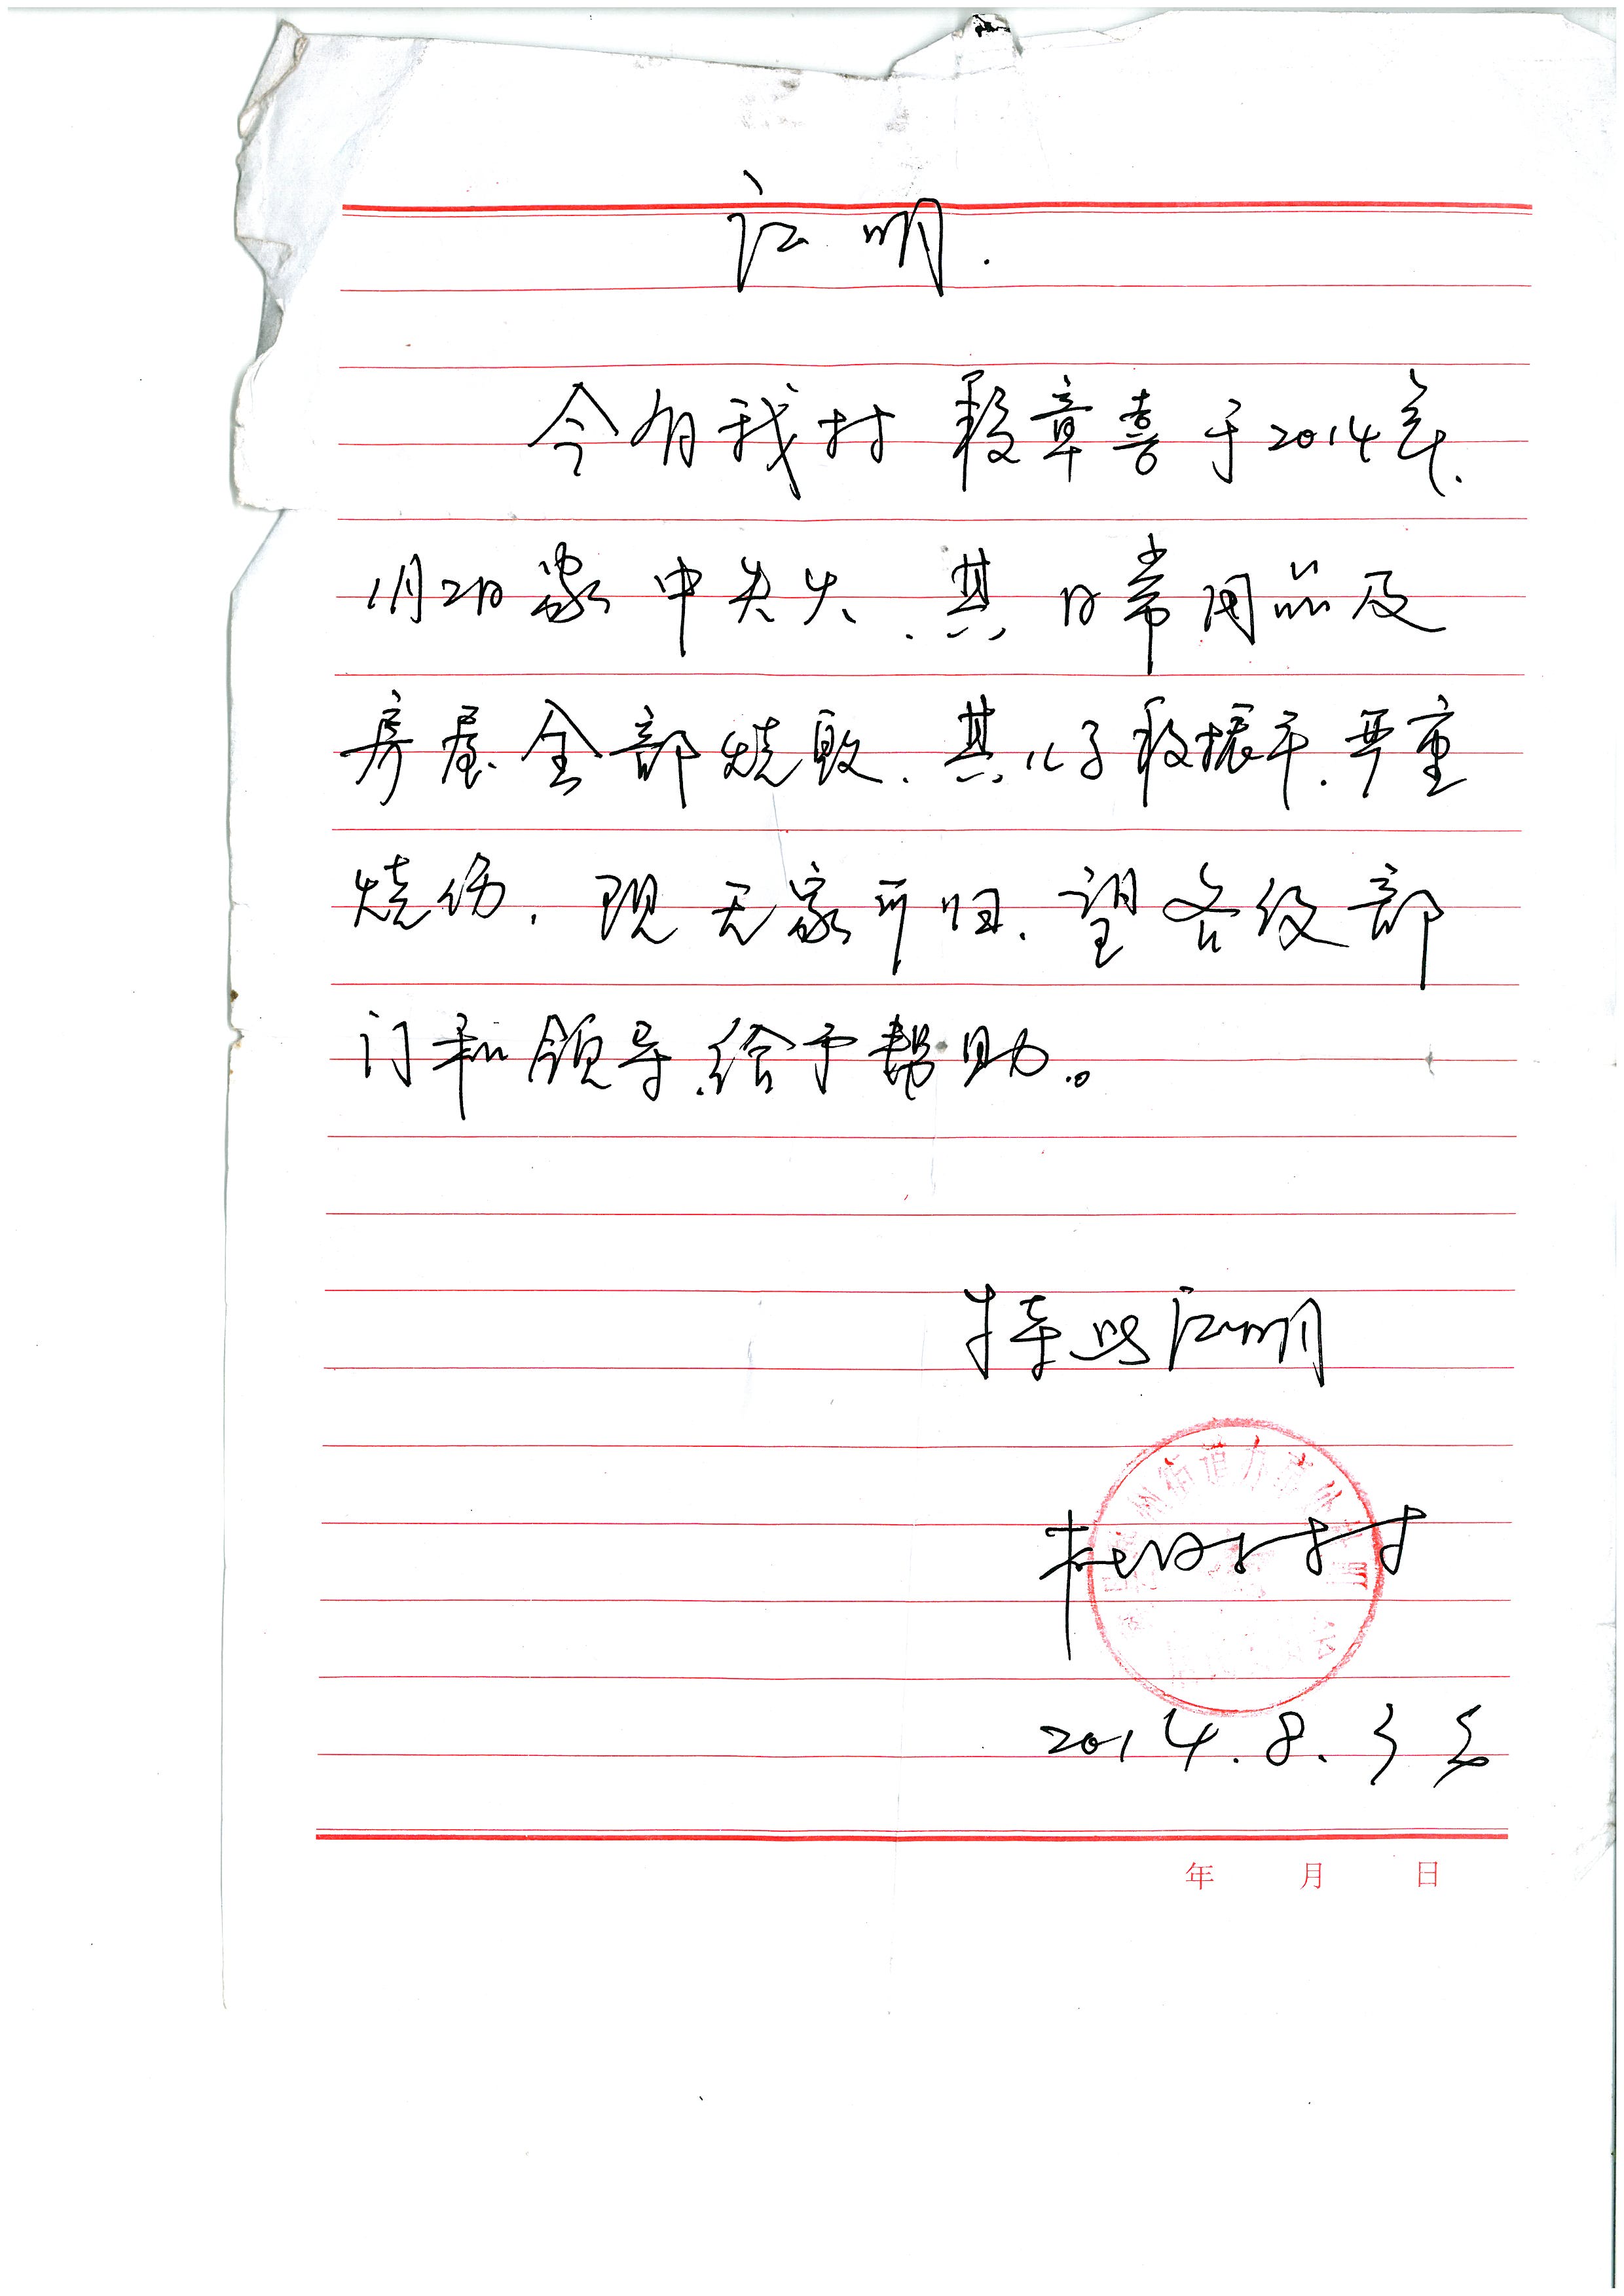 证明.
今有我村 段章喜于2014年.
1月2日家中失火、其日常用品及
房屋全部烧毁、其儿子段振平.严重
烧伤.现无家可归.望各级部
门和领导.给予帮助。
特此证明
村
2014.8.3
年 月 日